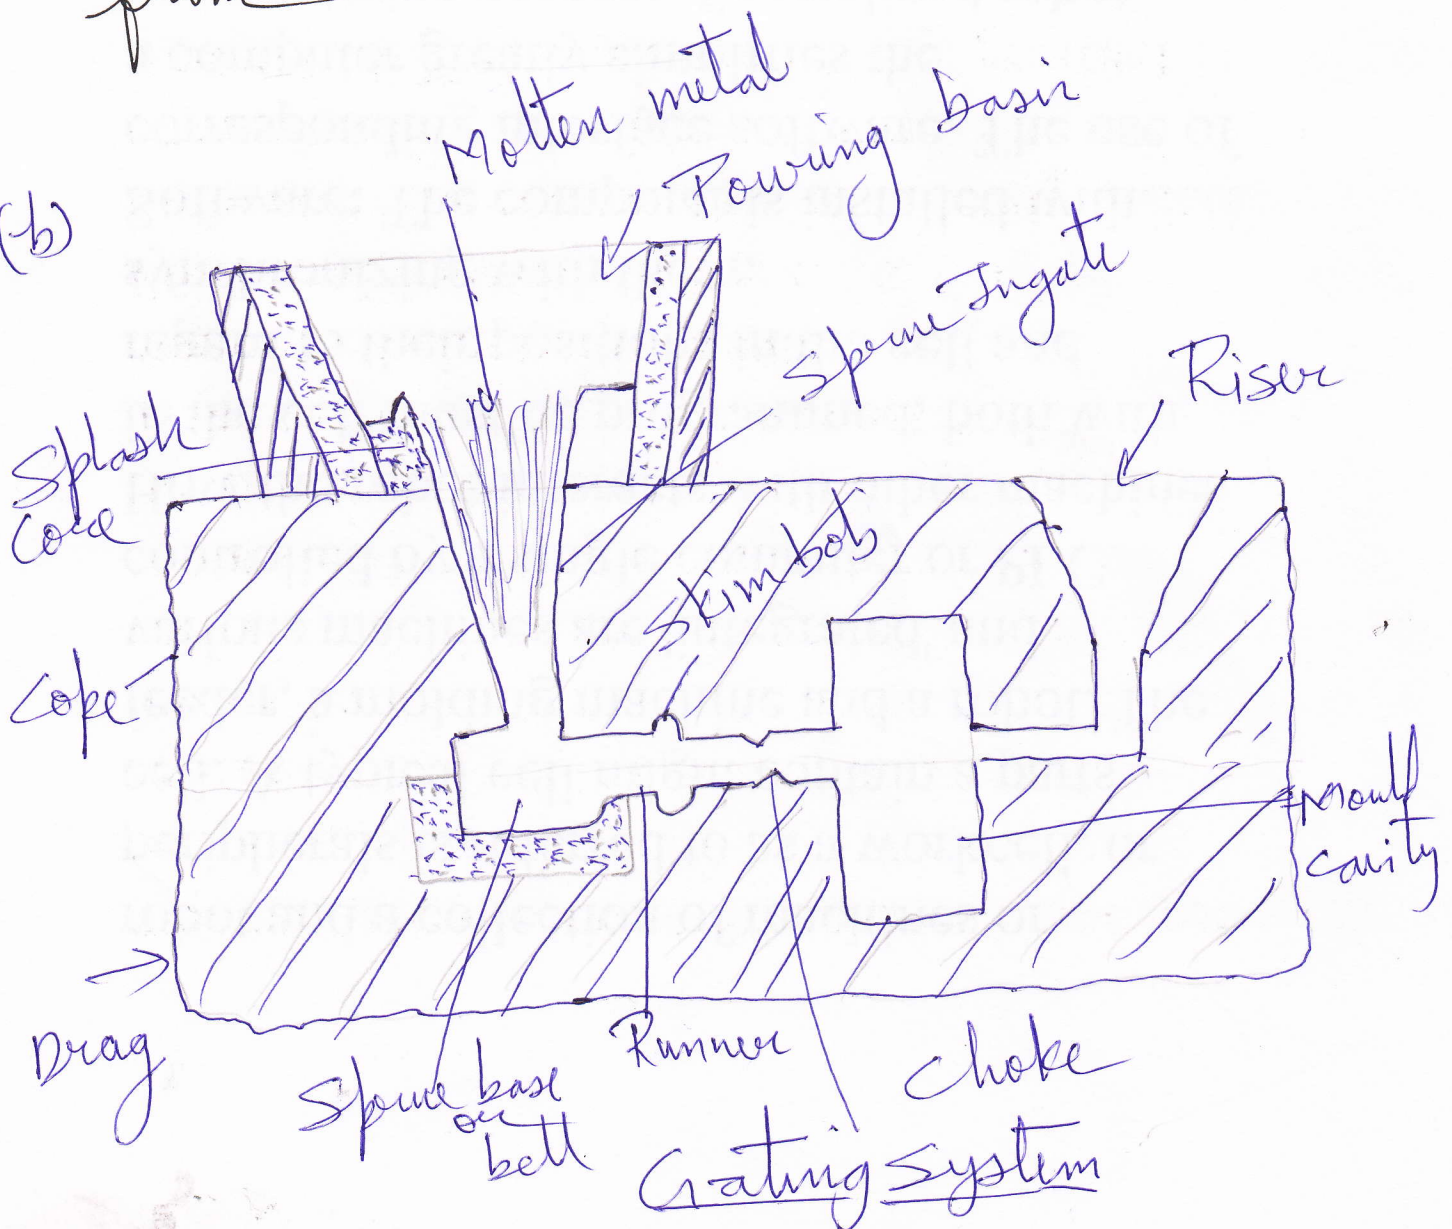 from
(b)
Molten metal
Pouring basin
Sprue Ingate
Riser
Splash
Core
Skimbob
Cope
Mould
cavity
Drag
Sprue base
or
bell
Runner
Choke
Gating System